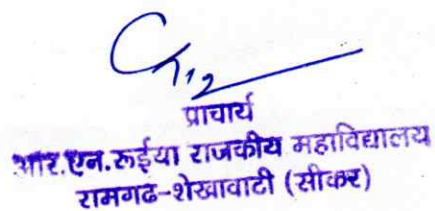 प्राचार्य
आर.एन.रूईया राजकीय महाविद्यालय
रामगढ-शेखावाटी (सीकर)